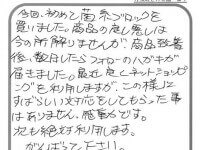 今回、初めて菌糸ブロックを
買いました。商品の良し悪しは
今の所解りませんが商品致着
後、数日したらフォローのハガキが
届きました。最近良くネットショッピ
ングを利用しますが、この様に
すばらしい対応をしてもらった事
はありません、感動です。
次も絶対利用します。
がんばって下さい。